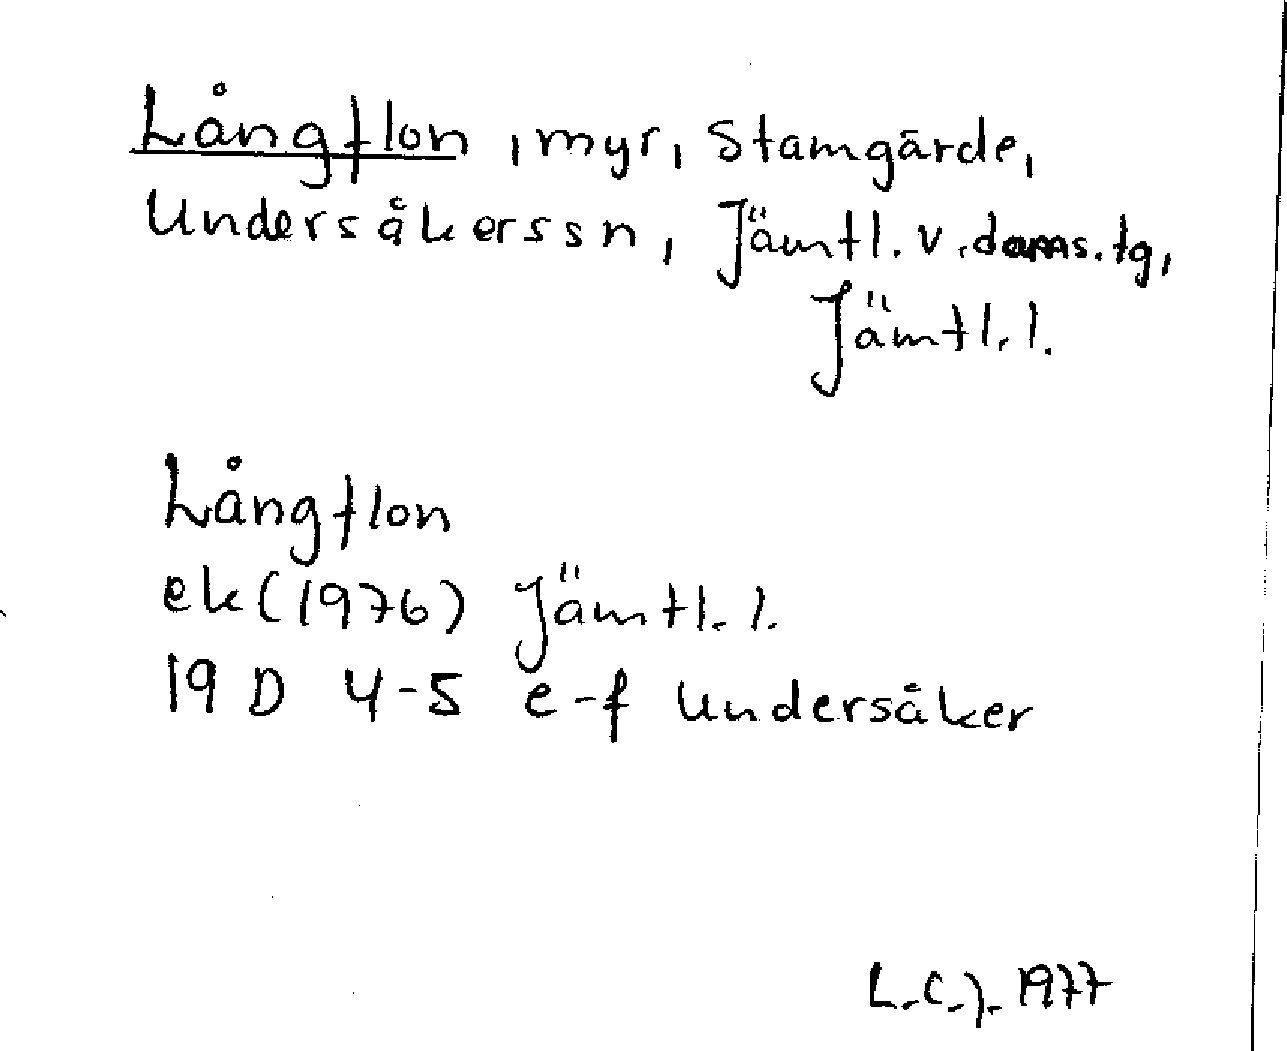 Långflon, myr, Stamgärde,
Undersåkerssn, Jämtl. v. doms. tg,
Jämtl. l.
Långflon
ek (1976) Jämtl. l.
19 D 4-5 e-f Undersåker
L.C.J. 1977